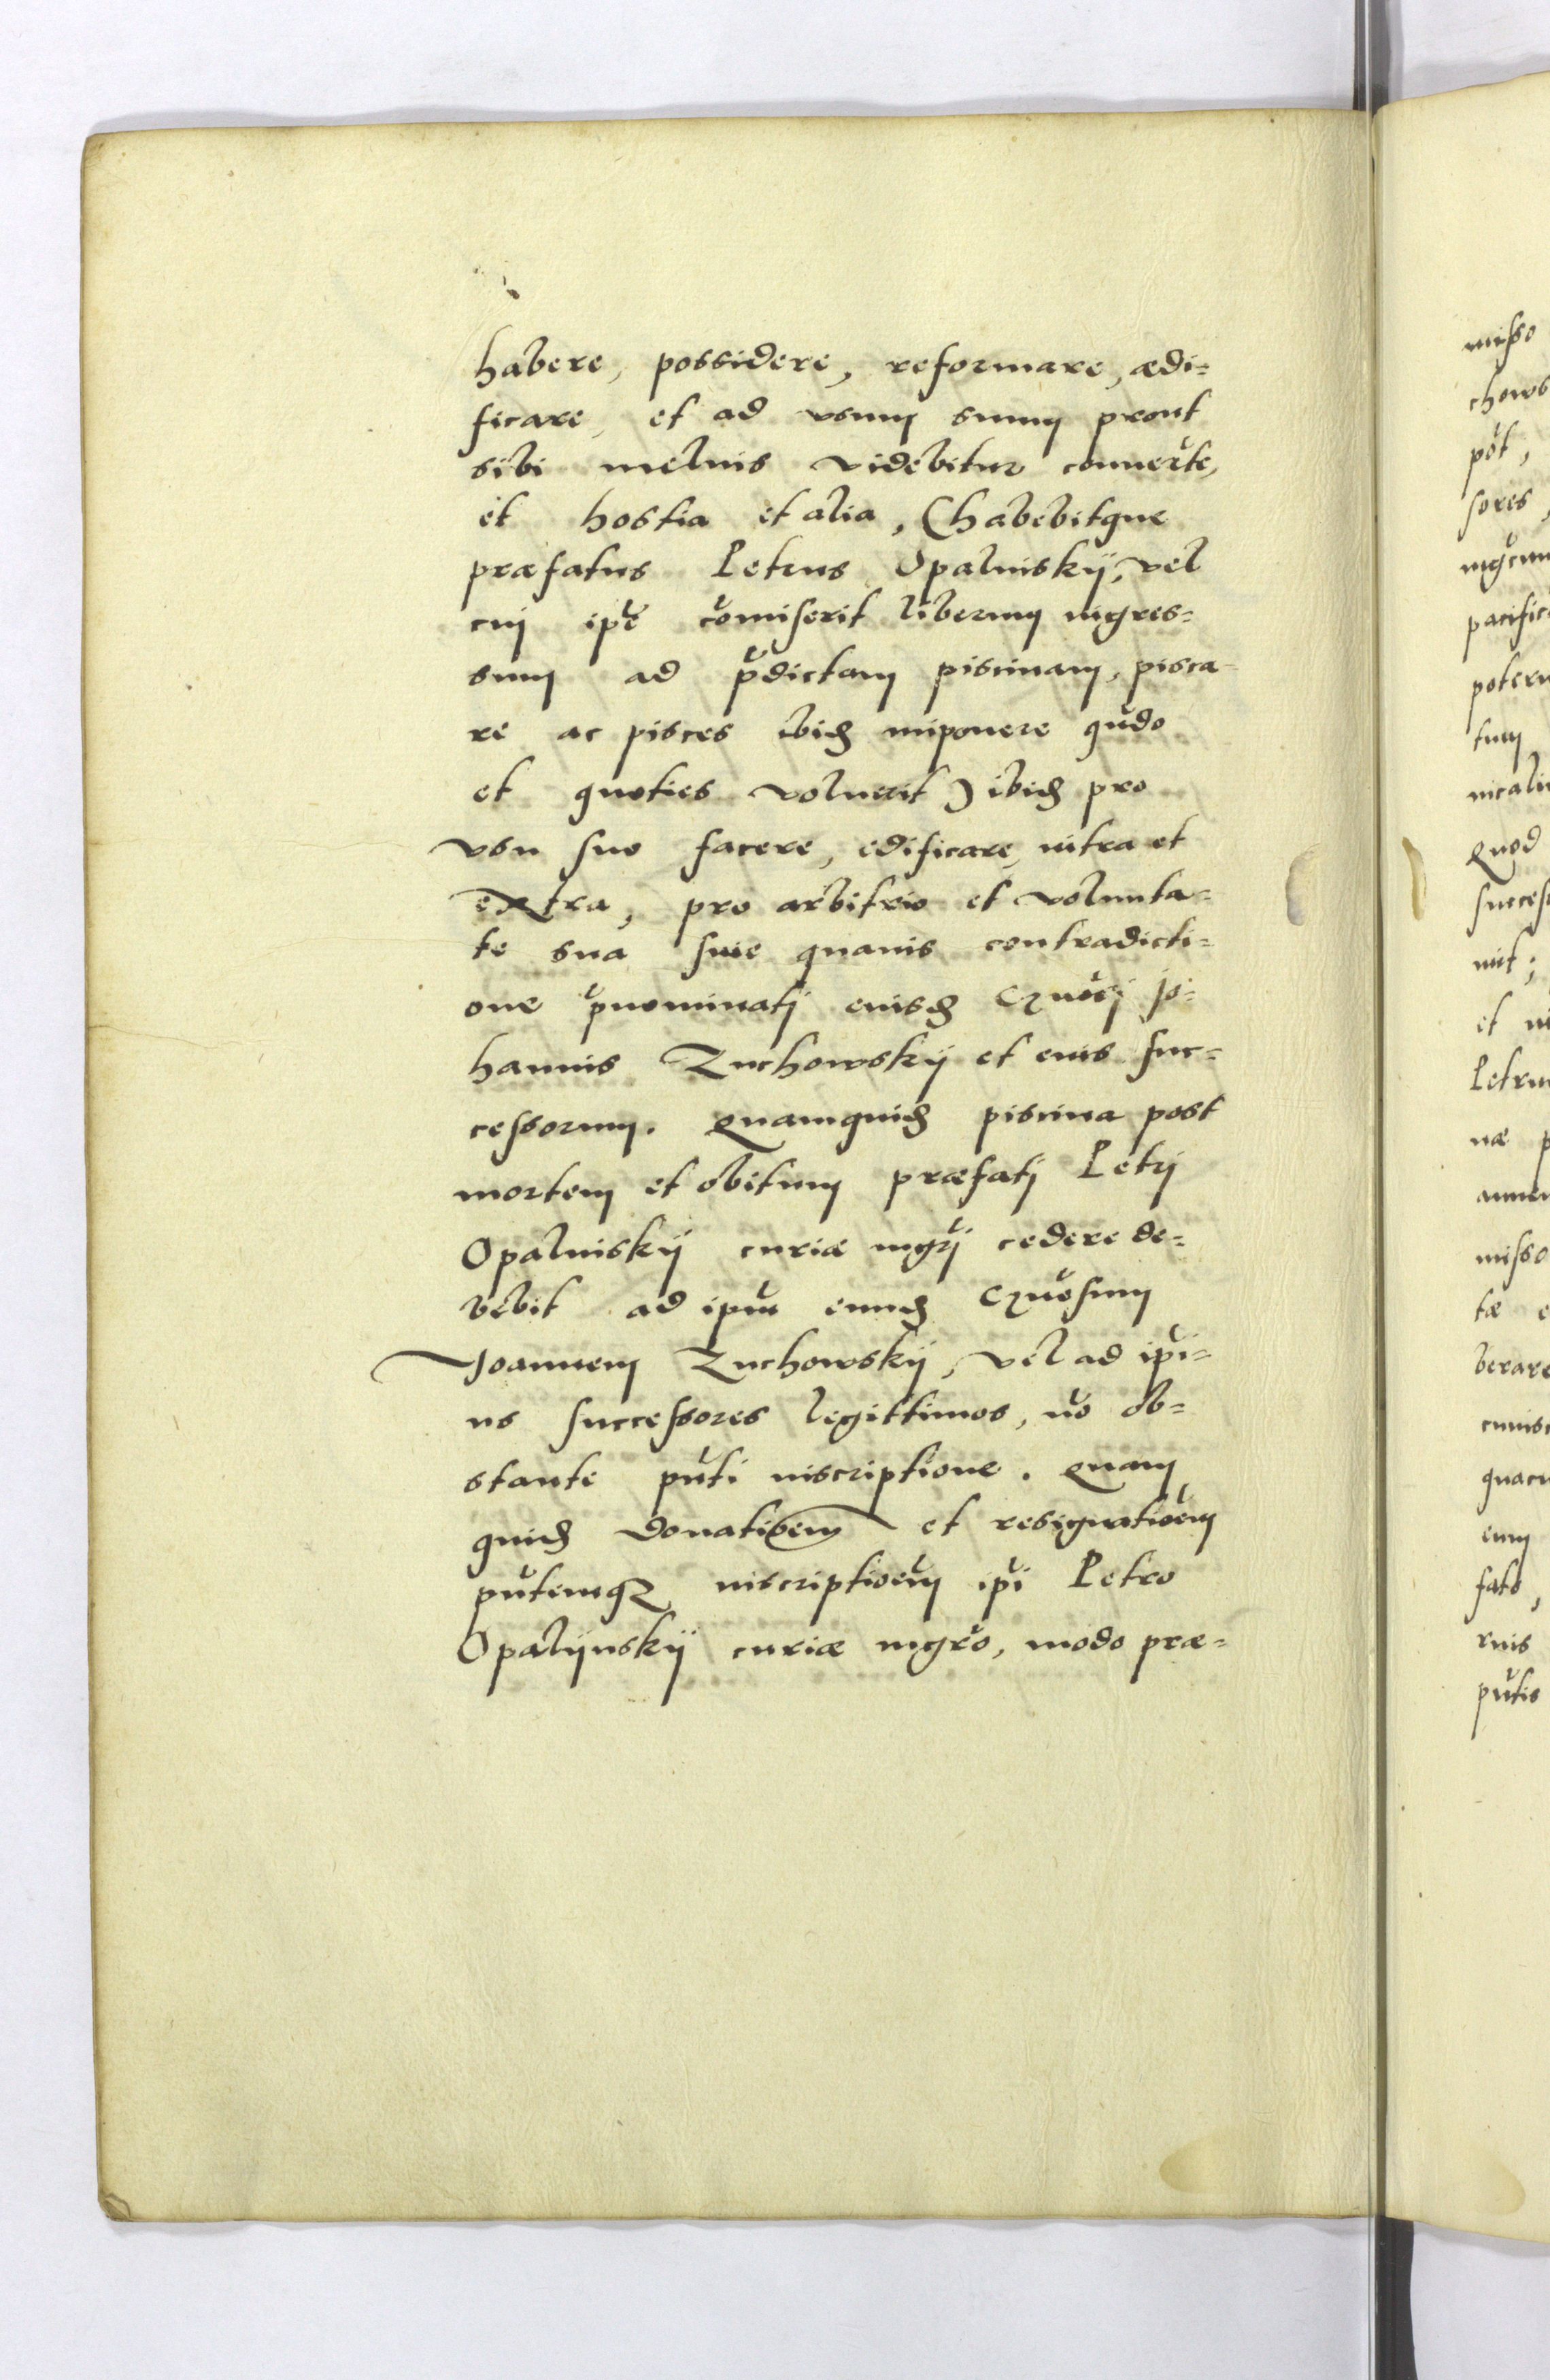 habere, possidere, reformare, ædi=
ficare, et ad vsum suum prout
sibi melius videbitur conuerte,
et hostia et alia, (habebitque
præfatus Petrus Opalinskij, vel
cuj ipe comiserit liberum ingres=
sum ad pdictam piscinam, pisca=
re ac pisces ibid imponere qndo
et quoties voluerit) ibid pro
vsu suo facere, edificare, intra et
extra, pro arbitrio et volunta=
te sua sine quauis contradicti=
one pnominatj eiusd gnosj Jo=
hannis Zuchowskij et eius suc=
cessorum. Quamquid piscina post
mortem et obitum præfatj Petrj
Opalinskij curiæ mgrj cedere de=
bebit ad ipm eund gnosum
Joannem Zuchowskij, vel ad ipi=
us successores legittimos, no ob=
stante pnti inscriptione. Quam
quid donatioem et resignatioem
pntemq inscriptioem ipi Petro
Opalijnskij curiæ mgro, modo præ=
misso
chows
pot,
sores,
mgrum
pacific
poterи
tum
nicali
Quod
success
nit;
et
Petrum
næ p
annu
misso
tæ
berare
cuius
quacu
eum
fato,
ruis
pntis